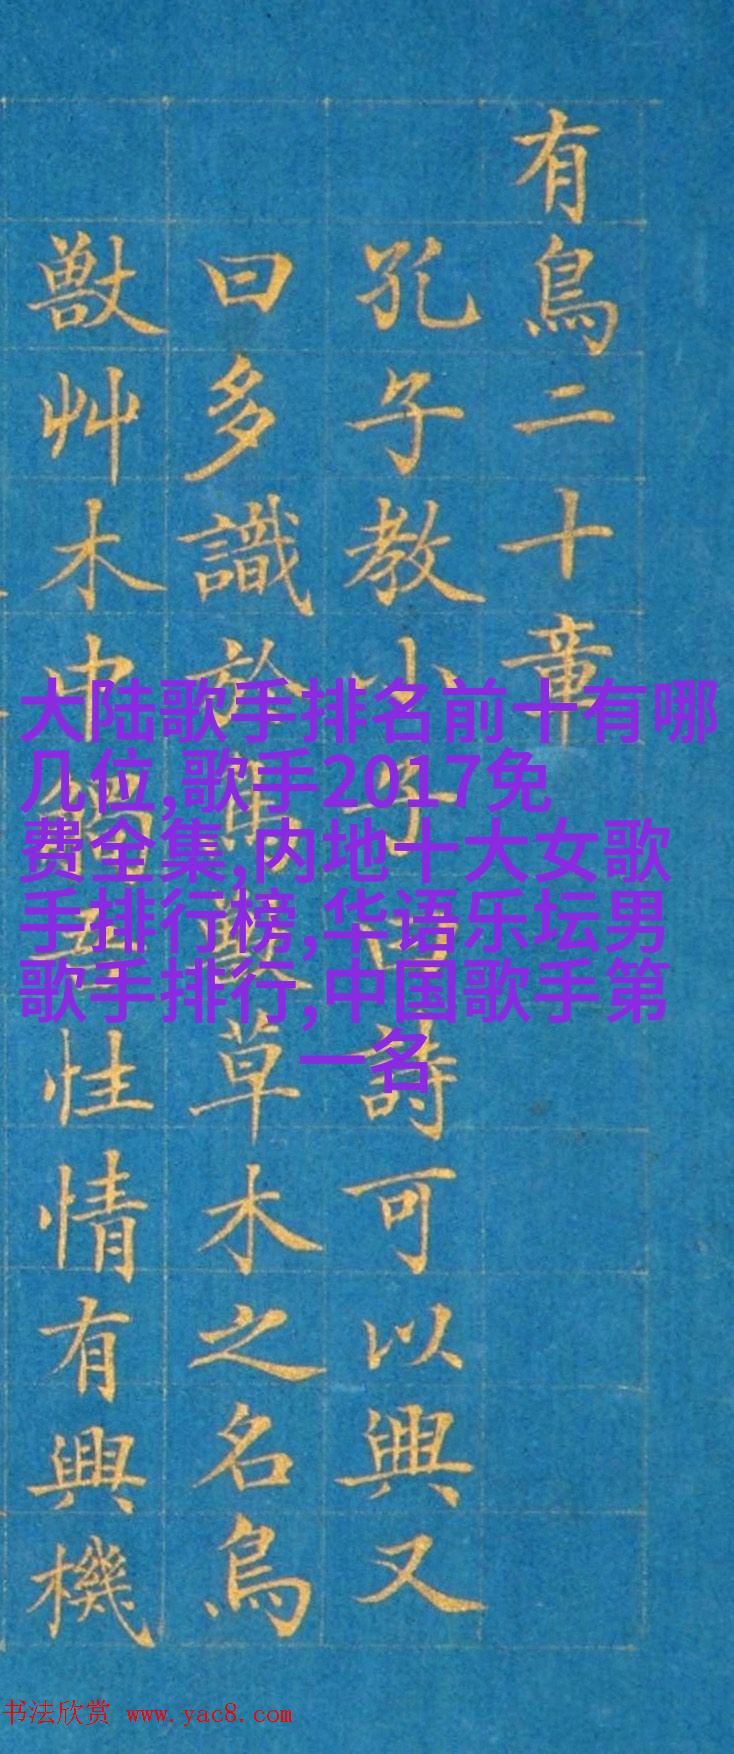 有鳥二十章
孔子教小子詩可以興又
曰多識於草木之名鳥
獸艸木中性情有興機
大陆歌手排名前十有哪
几位,歌手2017免
费全集,内地十大女歌
手排行榜,华语乐坛男
歌手排行,中国歌手第
一名
书法欣赏 www.yac8.com